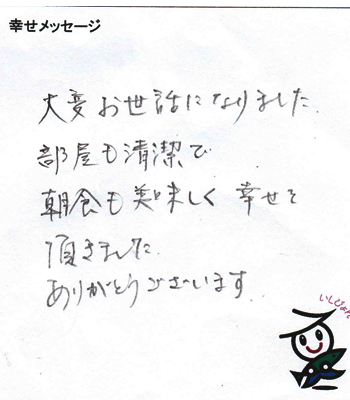 幸せメッセージ
大変お世話になりました
部屋も清潔で
朝食も美味しく 幸せを
頂きました
ありがとうございます